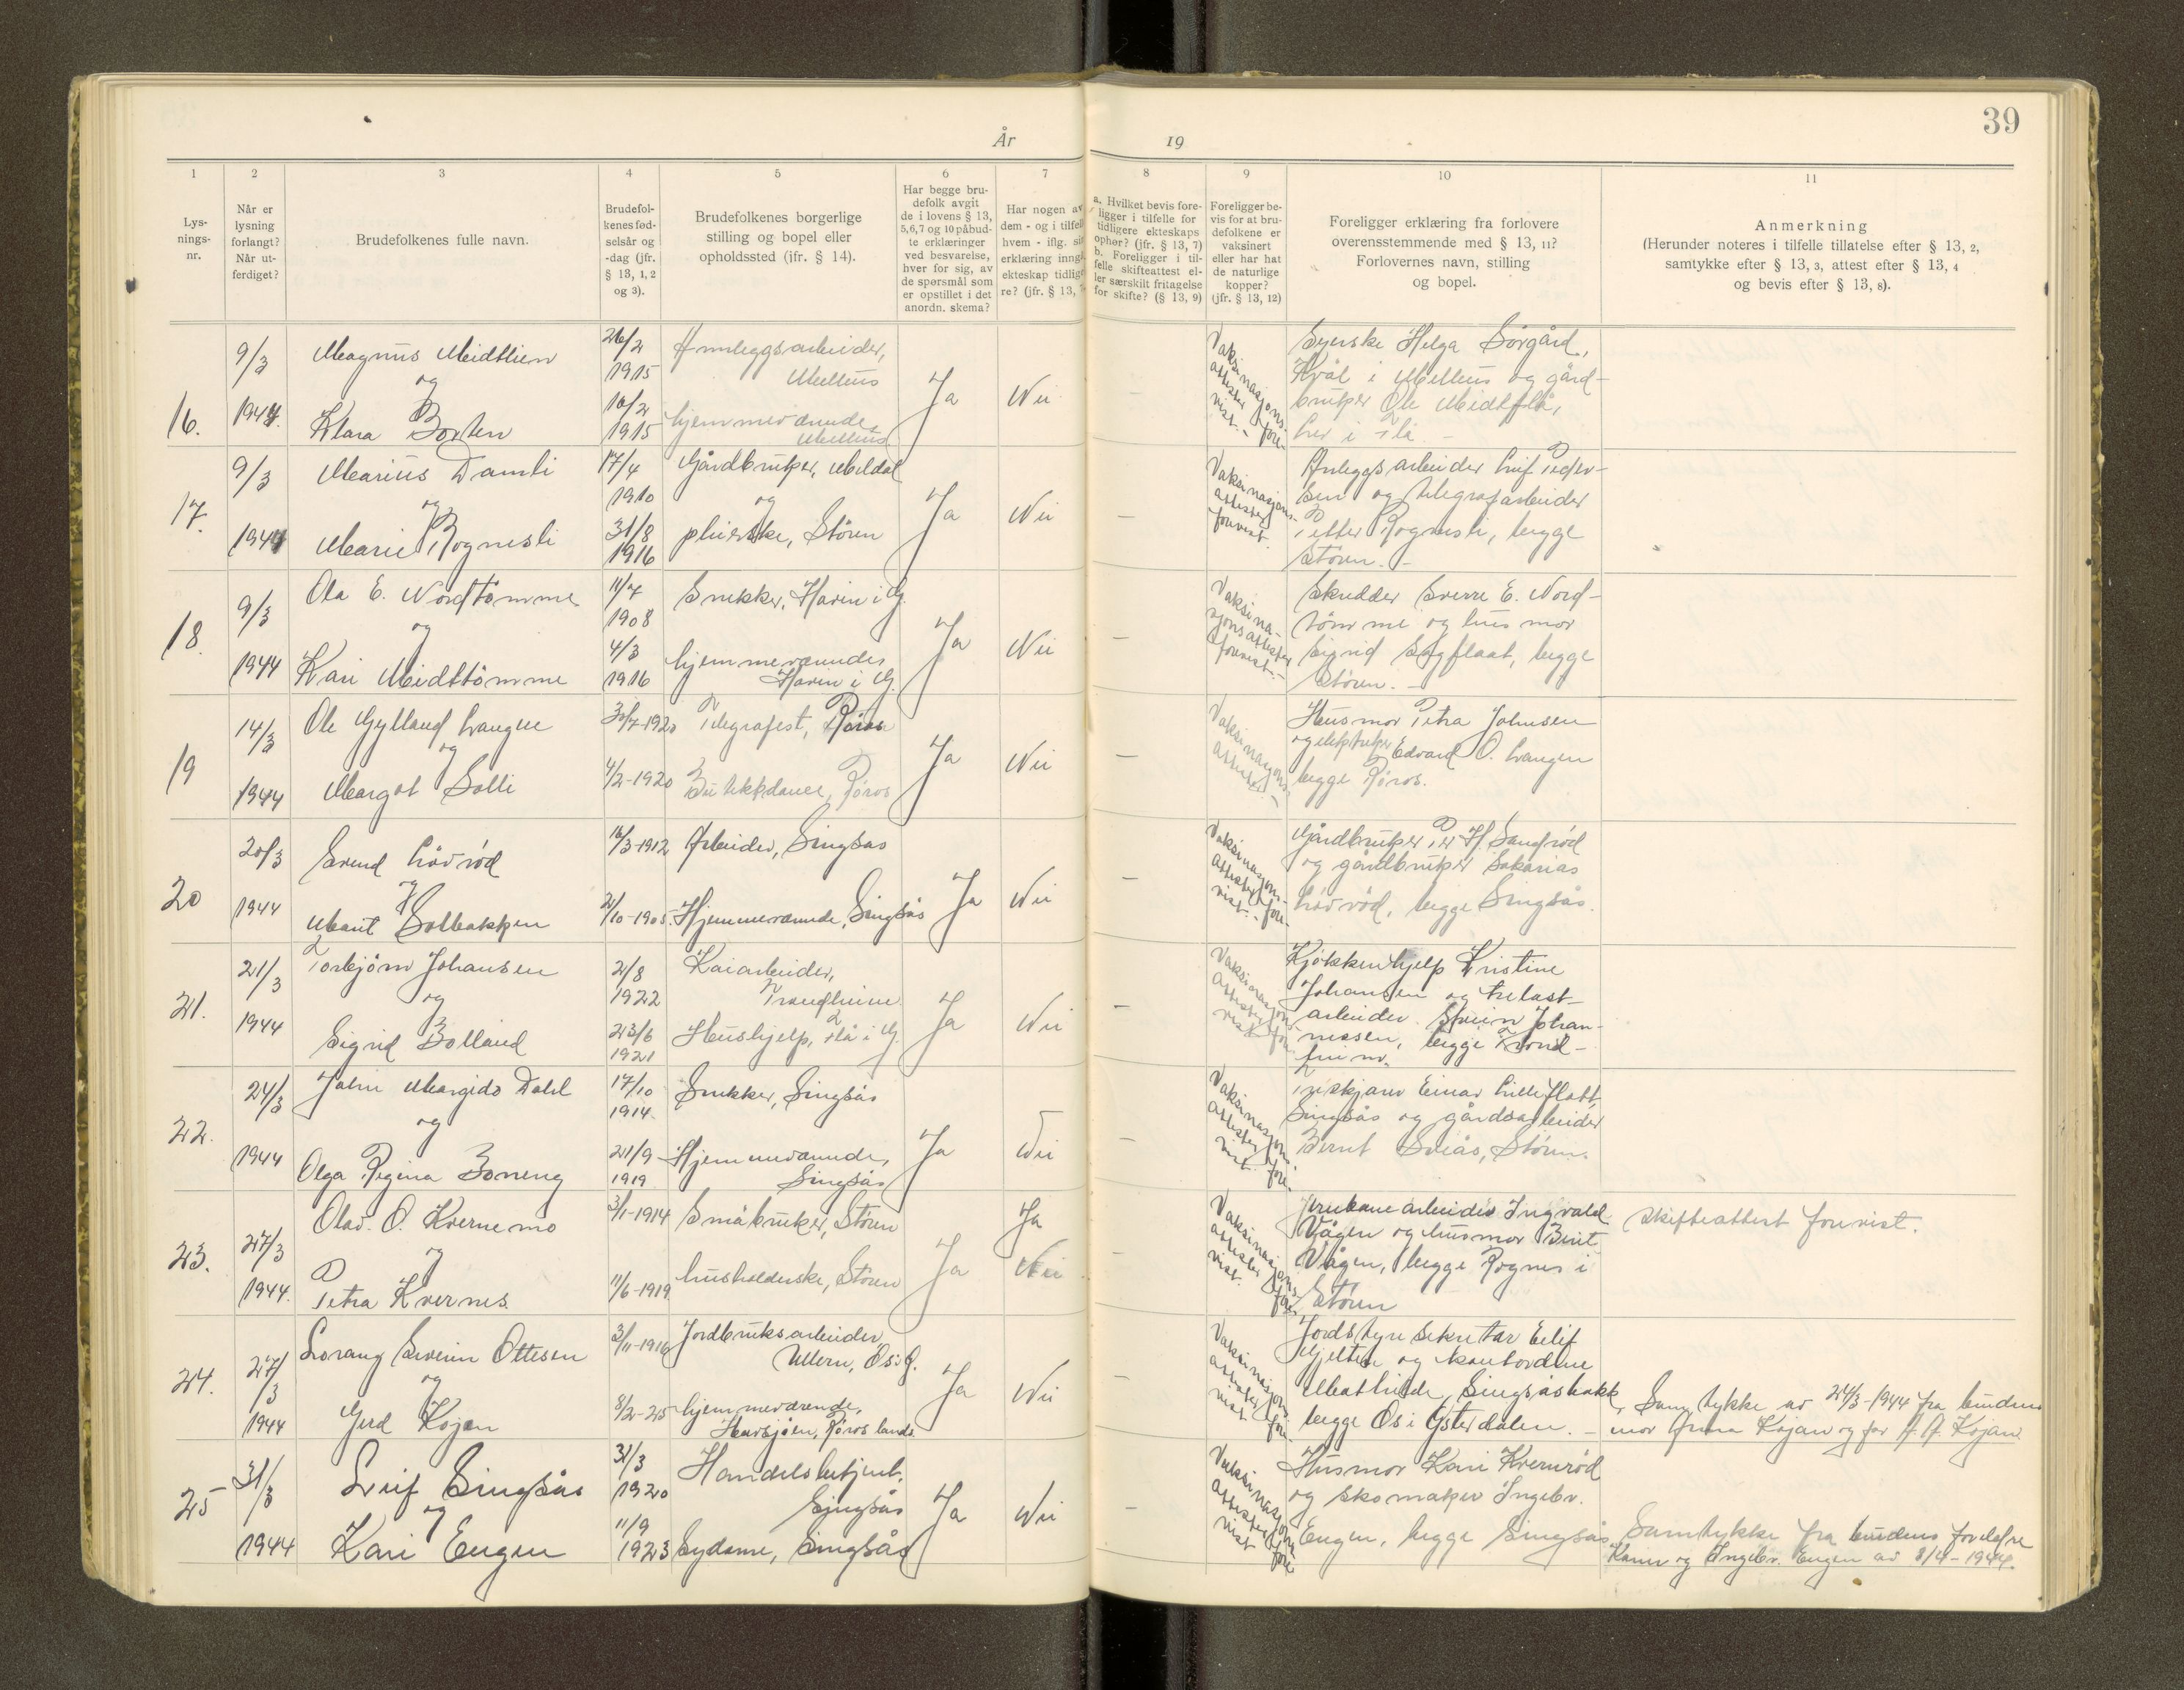 39
År 19
1
2
3
4
5
6
7
8
9
10
11
Lys-
nings-
nr.
Når er
lysning
forlangt?
Når ut-
ferdiget?
Brudefolkenes fulle navn.
Brudefol-
kenes fød-
selsår og
-dag (jfr.
§ 13, 1, 2
og 3).
Brudefolkenes borgerlige
stilling og bopel eller
opholdssted (jfr. § 14).
Har begge bru-
defolk avgit
de i lovens § 13,
5, 6, 7 og 10 påbud-
te erklæringer
ved besvarelse,
hver for sig, av
de spørsmål som
er opstillet i det
anordn. skema?
Har nogen av
dem - og i tilfelle
hvem - iflg. sin
erklæring inngå
ekteskap tidlige
re? (jfr. § 13, 7
a. Hvilket bevis fore-
ligger i tilfelle for
tidligere ekteskaps
ophør? (jfr. § 13, 7)
b. Foreligger i til-
felle skifteattest el-
ler særskilt fritagelse
for skifte? (§ 13, 9)
Foreligger be-
vis for at bru-
defolkene er
vaksinert
eller har hat
de naturlige
kopper?
(jfr. § 13, 12)
Foreligger erklæring fra forlovere
overensstemmende med § 13, 11?
Forlovernes navn, stilling
og bopel.
Anmerkning
(Herunder noteres i tilfelle tillatelse efter § 13, 2,
samtykke efter § 13, 3, attest efter § 13, 4
og bevis efter § 13, 8).
16.
9/3
1944.
Magnus Midtlien
og
Klara Borten
26/2
1915
16/2
1915
Anleggsarbeider,
Melhus
hjemmeværende,
Melhus
Ja
Nei
-
Vaksinasjons-
attester fore-
vist. -
Syerske Helga Sørgård,
Kvål i Melhus og gård-
bruker Ole Midtflå,
her i Flå. -
17.
9/3
1944
Marius Damli
og
Marie Rognesli
17/4
1910
31/8
1916
Gårdbruker, Meldal
og
pleierske, Støren
Ja
Nei
-
Vaksinasjons-
attester
forevist.
Anleggsarbeider Leif Peder-
sen og telegrafarbeider
Petter Rognesli, begge
Støren. -
18.
9/3
1944
Ola E. Nordtømme
og
Kari Midttømme
11/7
1908
4/3
1916
Snekker, Hovin i G.
hjemmeværende,
Hovin i G.
Ja
Nei
-
Vaksina-
sjonsattester
forevist. -
Skredder Sverre E. Nord-
tømme og husmor
Sigrid Sagflaat, begge
Støren. -
19
14/3
1944
Ole Gylland Langen
og
Margot Solli
30/7-1920
4/2-1920
Telegrafist, Røros
Butikkdame, Røros
Ja
Nei
-
Vaksinasjons-
attester. -
Husmor Petra Johnsen
Edvard O. Langen
begge Røros.
20
20/3
1944
Svend Løvrød
og
Marit Solbakken
16/3-1912
21/10-1905.
Arbeider, Singsås
Hjemmeværende, Singsås
Ja
Nei
-
Vaksinasjons-
attester fore-
vist. -
Gårdbruker Per H. Sandrød
og gårdbruker Sakarias
Løvrød, begge Singsås.
21.
21/3
1944
Torbjørn Johansen
og
Sigrid Bolland
2/8
1922
23/6
1921
Kaiarbeider,
Trondheim
Hushjelp, Flå i G.
Ja
Nei
-
Vaksinasjons-
attester fore-
vist
Kjøkkenhjelp Kristine
Johansen og trelast-
arbeider Svein Johan-
nessen, begge Trond-
heim.
22.
24/3
1944
John Margido Dahl
og
Olga Regina Boneng
17/10
1914.
21/9
1919
Snekker, Singsås
Hjemmeværende,
Singsås
Ja
Nei
-
Vaksinasjons-
attester fore-
vist.
Einar Lilleflott,
Singsås og gårdsarbeider
Bernt Sviås, Støren.
23.
27/3
1944.
Olav. O. Kvernemo
og
Petra Kvernes.
3/1-1914
11/6-1919
Småbruker, Støren
husholderske, Støren
Ja
Ja
Nei
-
Vaksinasjons-
attester fore-
vist.
Jernbanearbeider Ingvald
Vågen og husmor Berit
Vågen, begge Rognes i
Støren
Skifteattest forevist.
24.
27/3
1944
Lorang Severin Ottesen
og
Gerd Kojan
3/11-1916
8/2-25
Jordbruksarbeider
Ullern, Os i Ø.
hjemmeværende,
Harsjøen, Røros lands.
Ja
Nei
-
Vaksinasjons-
attester fore-
vist.
Jordstyresekretær Eilif
Gjelten og kontordame
Mathilde Singsåsbakk,
begge Os i Østerdalen. -
Samtykke av 24/3-1944 fra brudens
mor Anna Kojan og far A. A. Kojan
25
31/3
1944
Leif Singsås
og
Kari Engen
31/3
1920
11/9
1923
Handelsbetjent.
Singsås
Sydame, Singsås
Ja
Nei
-
Vaksinasjons-
attester fore-
vist
Husmor Kari Kvernrød
og skomaker Ingebr.
Engen, begge Singsås
Samtykke fra brudens foreldre
Karen og Ingebr. Engen av 8/4-1944.